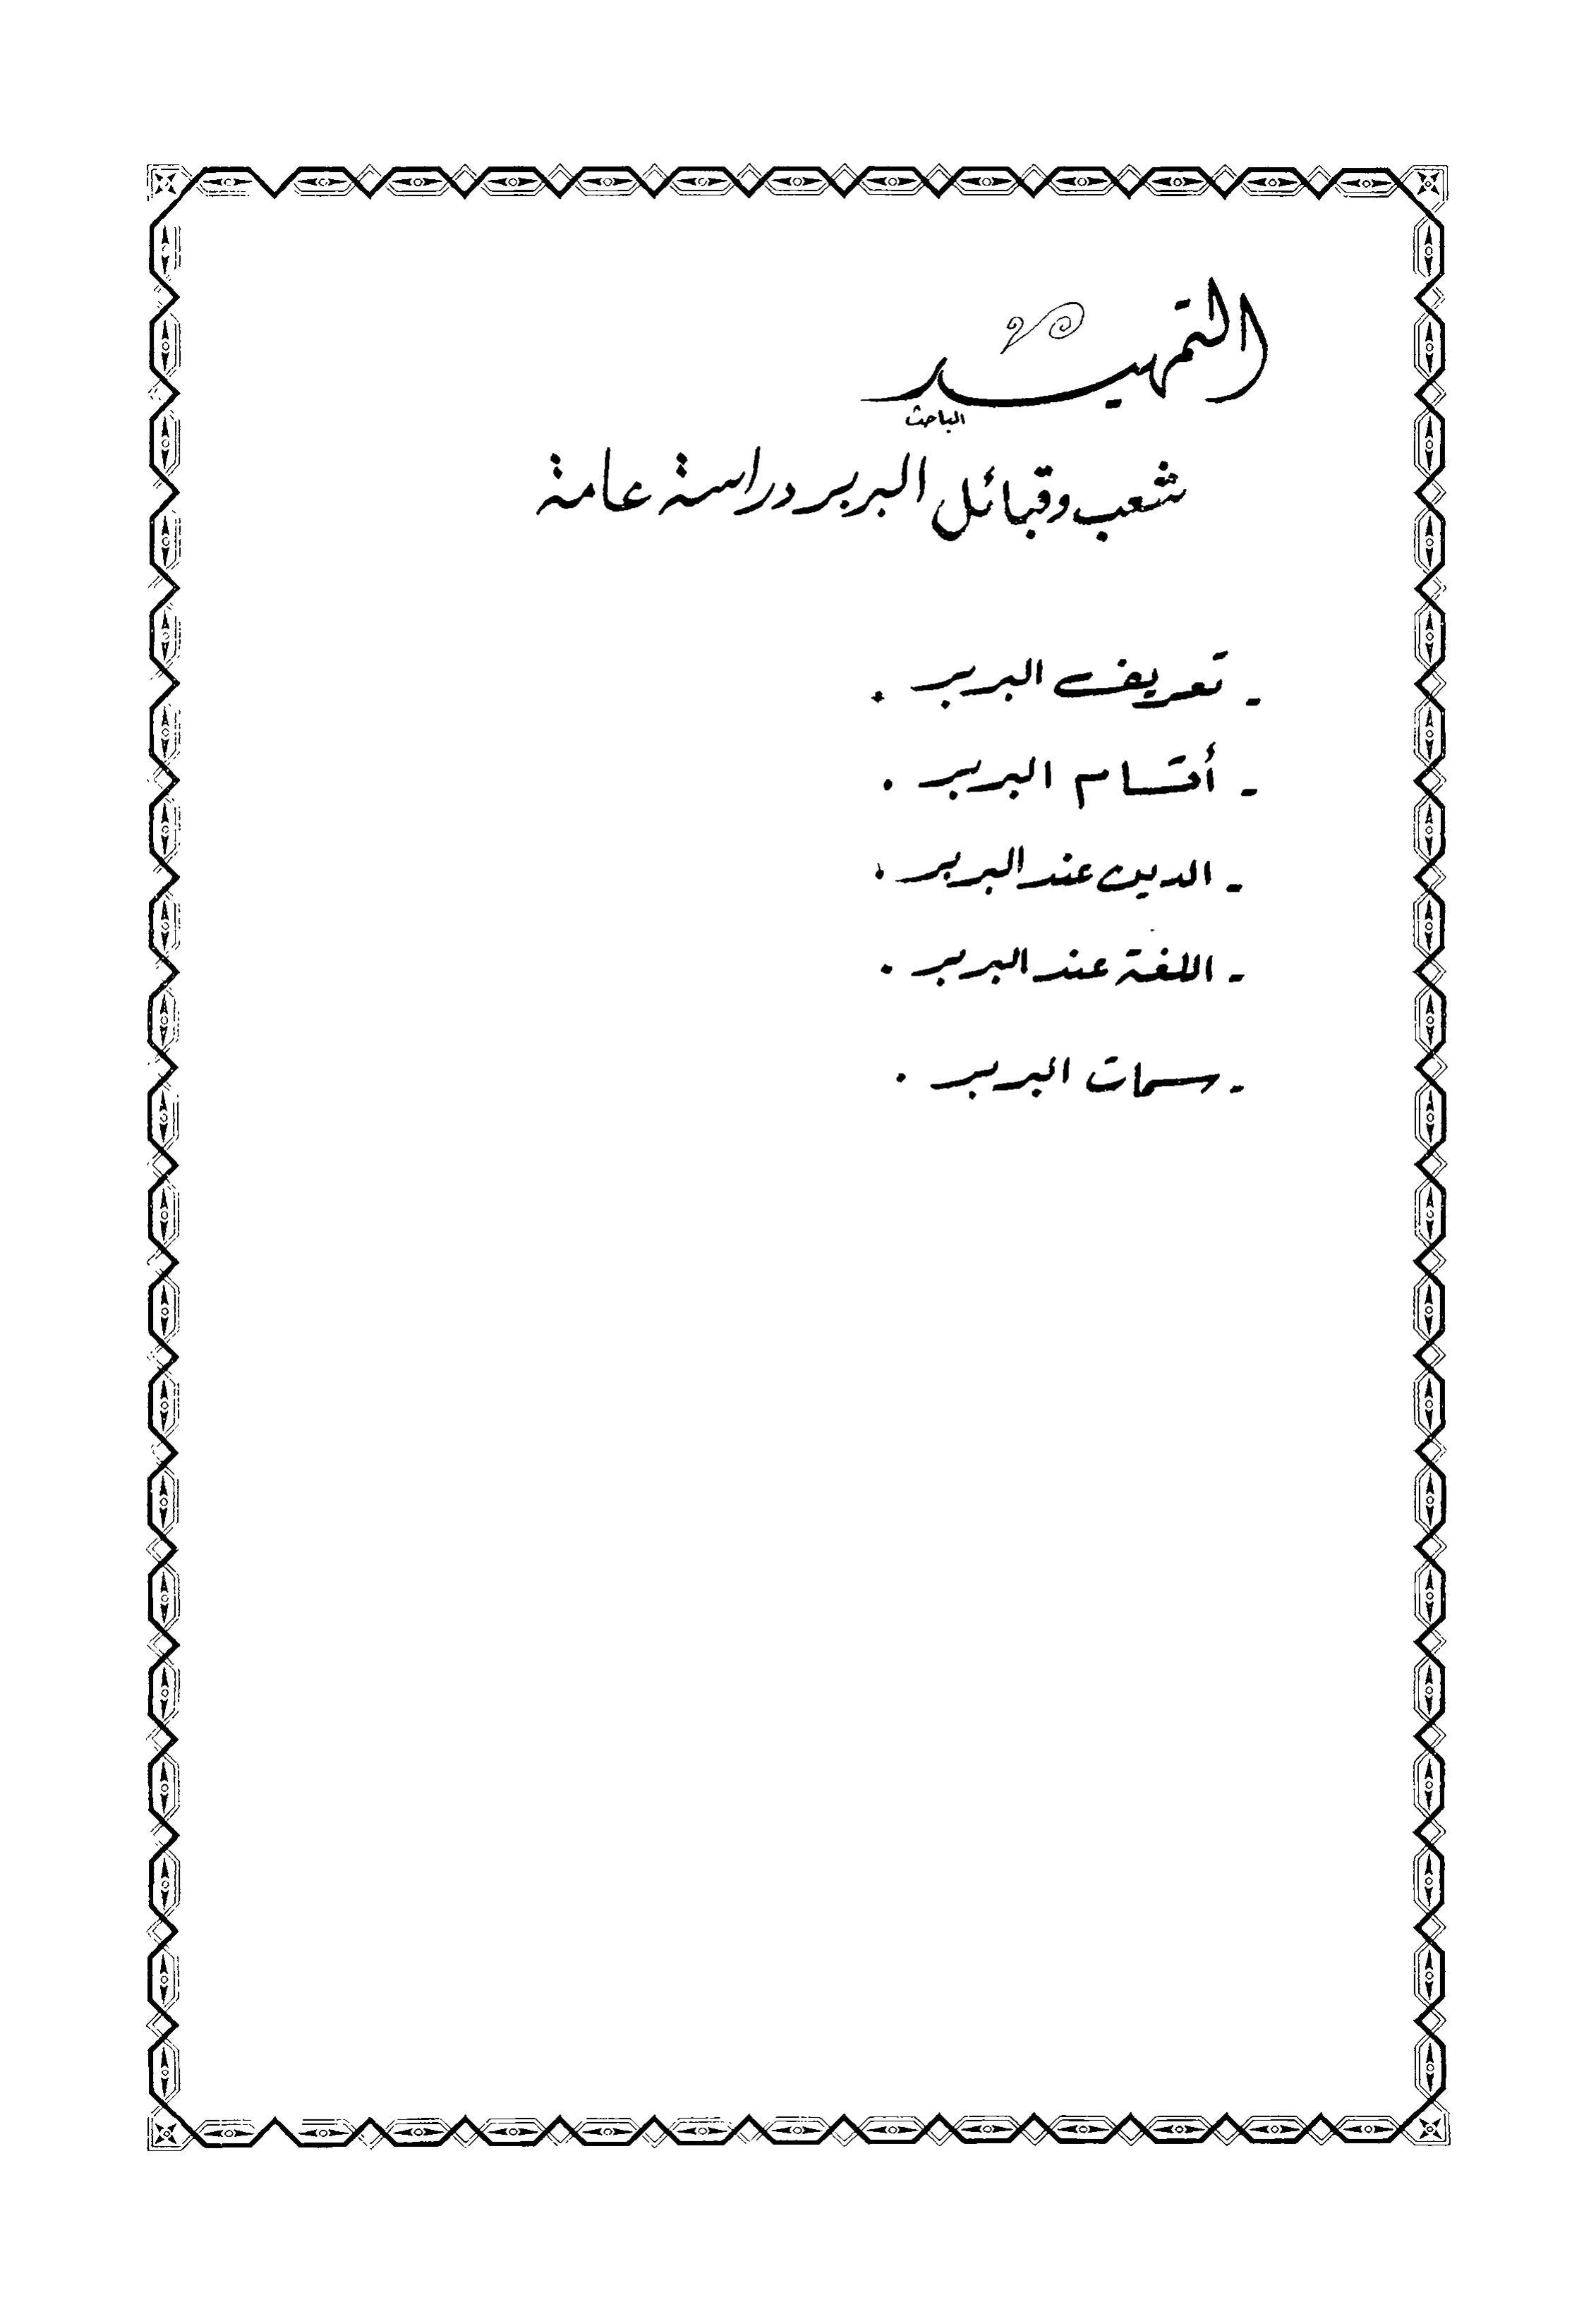 التمهيد
الباحث
شعب وقبائل البربر دراسة عامة
- تعريف البربر .
- أقسام البربر .
- الدين عند البربر .
- اللغة عند البربر .
- سمات البربر .